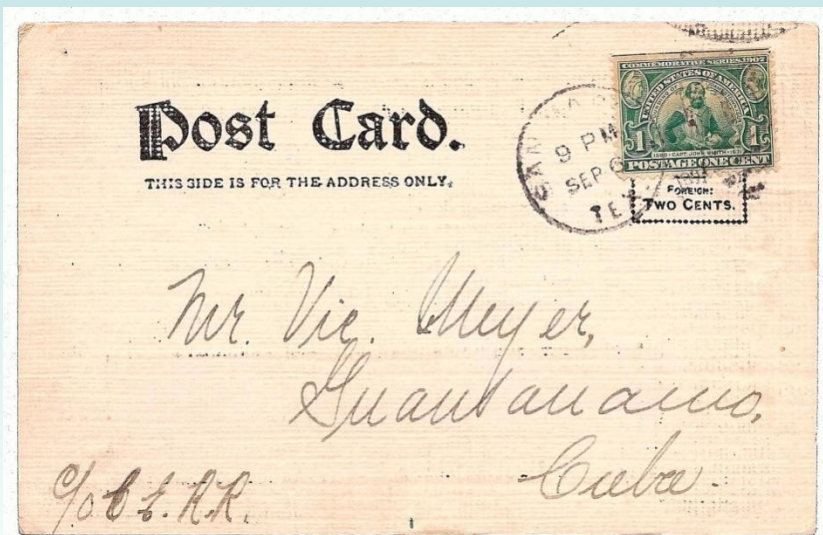 Post Card.
THIS SIDE IS FOR THE ADDRESS ONLY.
COMMEMORATIVE SERIES 1907
UNITED STATES OF AMERICA
1 1¢
1580 CAPT. JOHN SMITH 1631
POSTAGE ONE CENT
9 PM
SEP 6
TEX
FOREIGN:
TWO CENTS.
Mr. Vic. Meyer,
Guantanamo,
Cuba.
c/o C E. R.R.